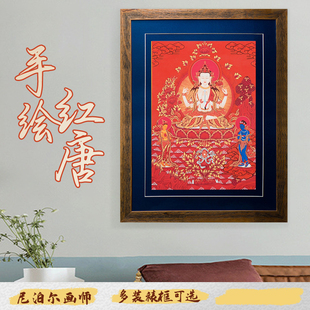 手绘
红唐
尼泊尔画师 多装裱框可选